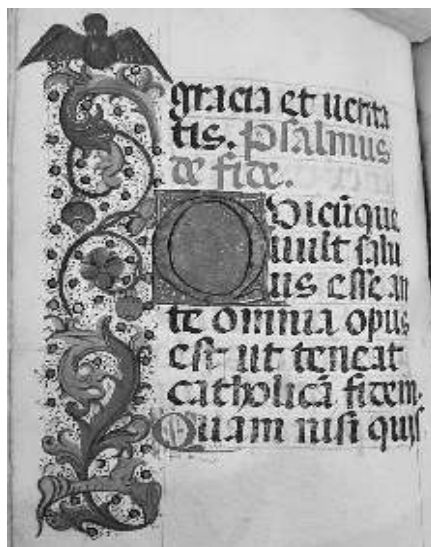 gracia et uerita
tis. Psalmus
de fide.
Quicūque
uult salu
us esse an
te omnia opus
est ut teneat
catholicā fidem.
Quam nisi quis